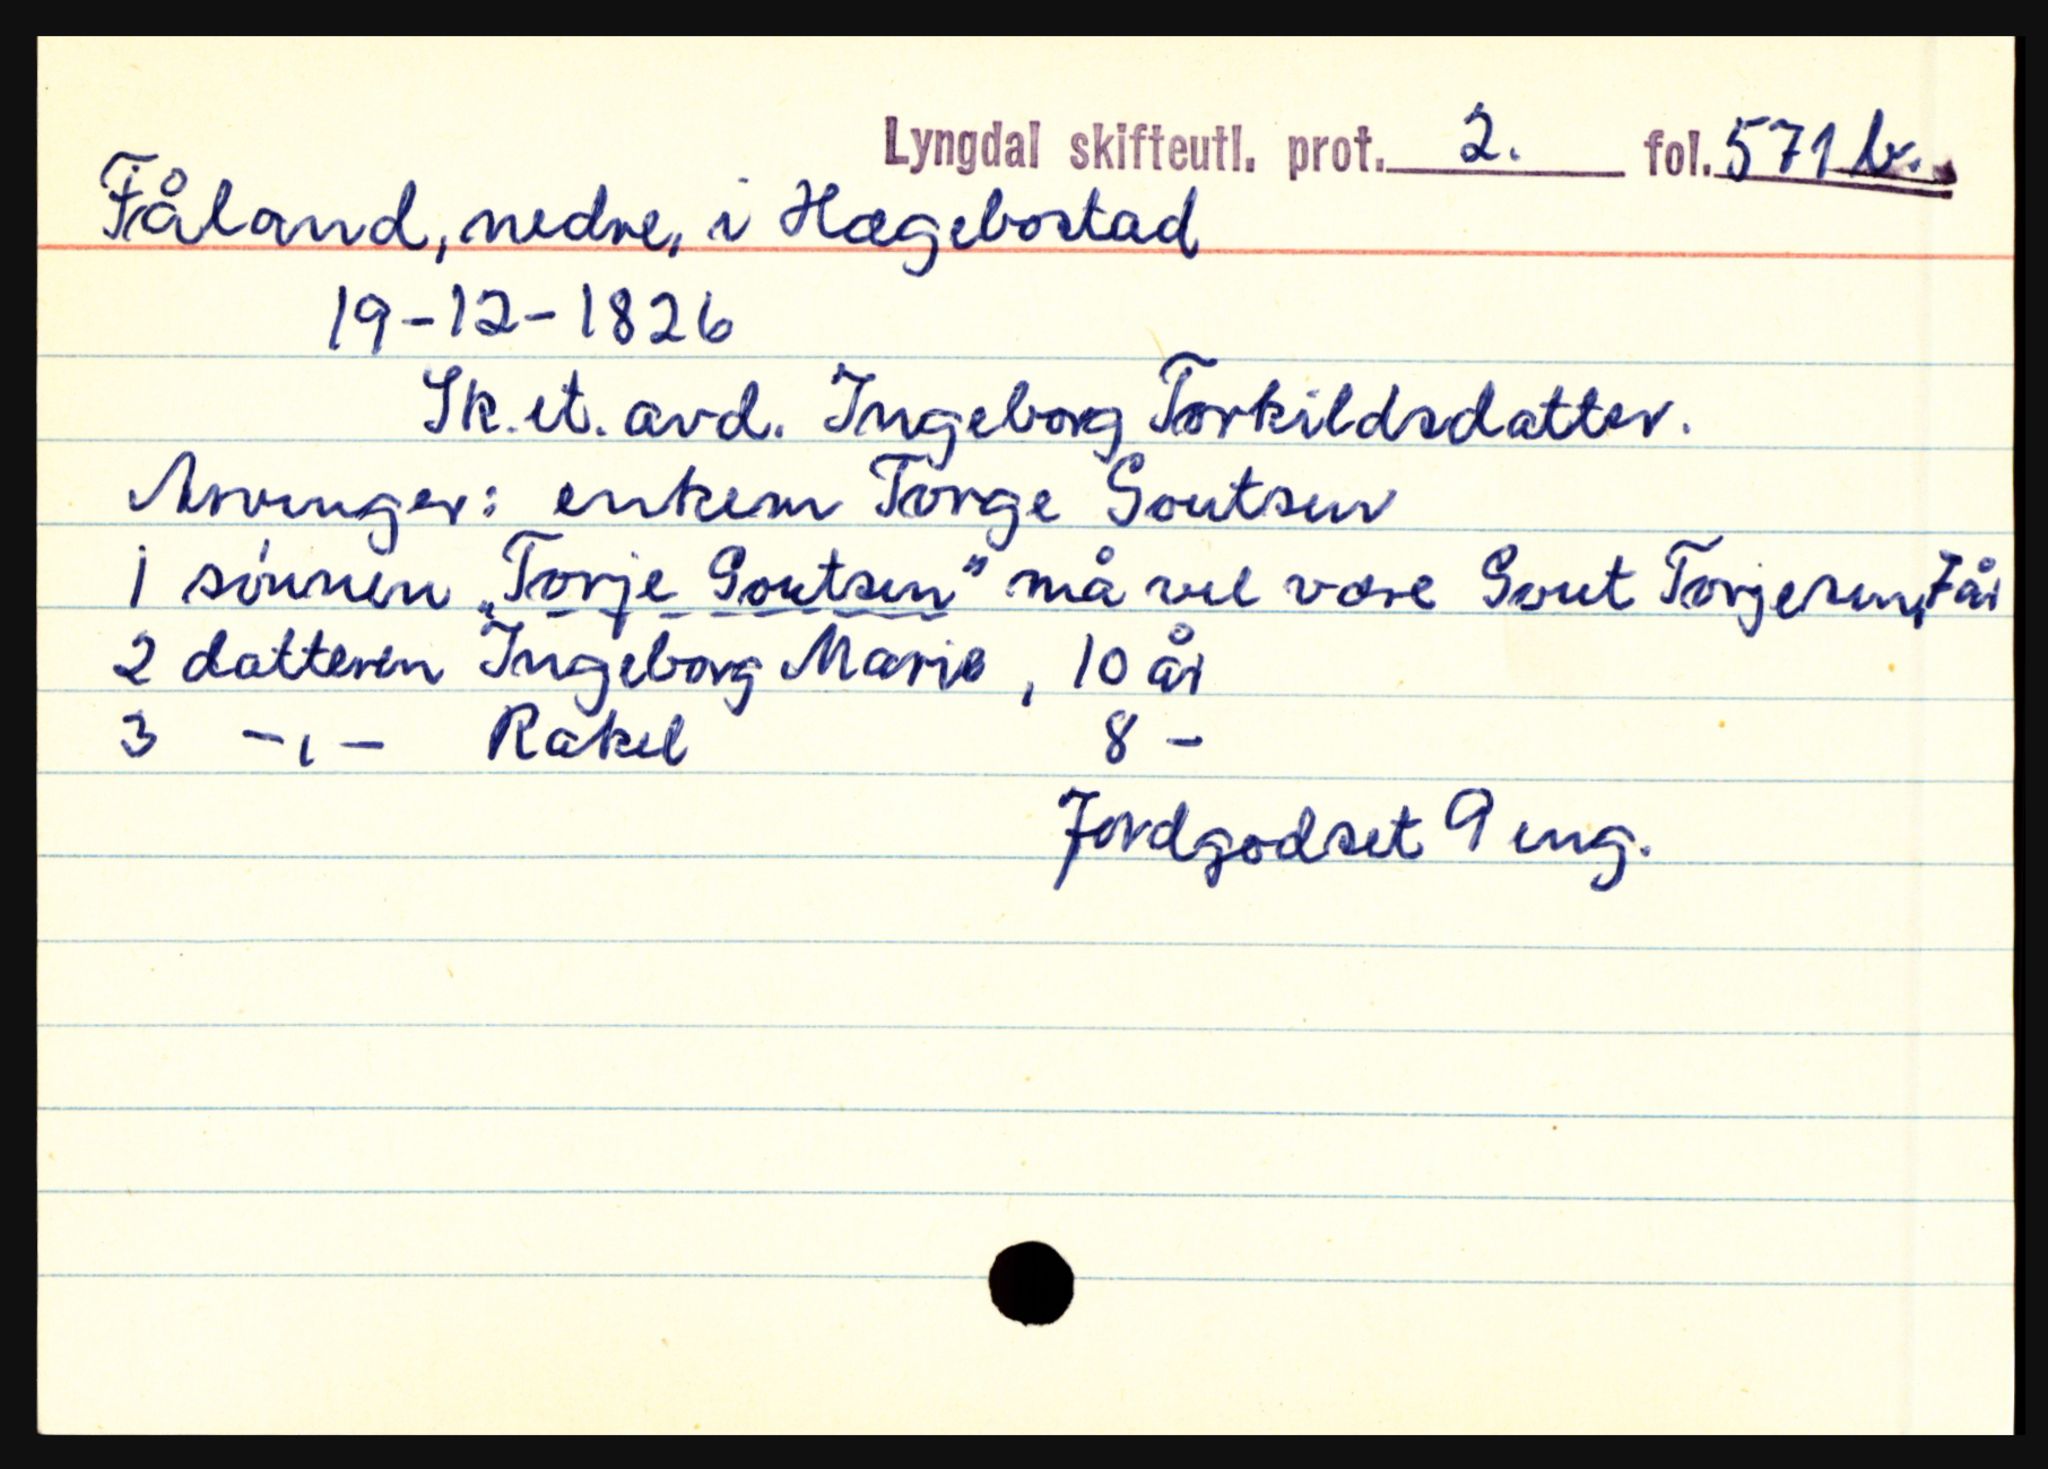 Lyngdal skifteutl. prot. 2. fol. 571 b.
Fåland, nedre, i Hægebostad
19-12-1826
Sk. et. avd. Ingeborg Torkildsdatter.
Arvinger: enkem Torge Goutsen
1 sönnen „Torje Goutsen" må vel være Gout Torjesen, 7 år
2 datteren Ingeborg Marie, 10 år
3 -,- Rakel 8 -
Jordgodset 9 eng.